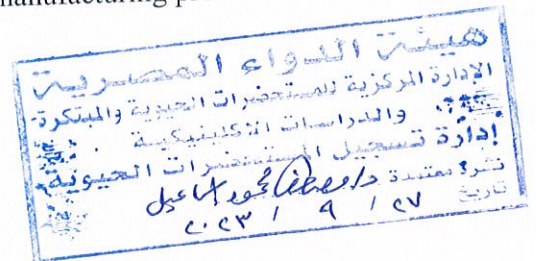 manufacturing pr
هيئة الدواء المصرية
الإدارة المركزية للمستحضرات الحيوية والمبتكرة
والدراسات الاكلينيكية
إدارة تسجيل المستحضرات الحيوية
نشرة معتمدة د/ مصطفى محمود اسماعيل
تاريخ ٢٧ / ٩ / ٢٠٢٣